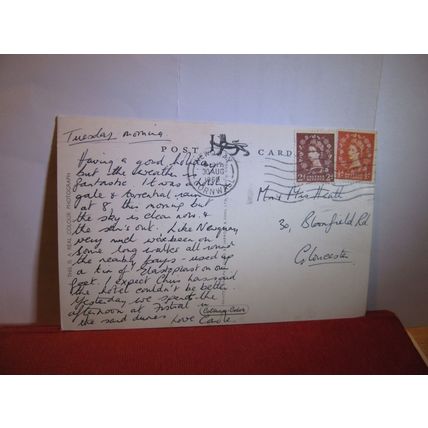 Tuesday morning
POST CARD
Having a good holiday
but the weather is
fantastic. It was blowing
gale & torrential rain
at 8, this morning but
the sky is clear now &
the sun's out. Like Newquay
very much we've been on
some long walks all round
the nearby bays - used up
a tin of Elastoplast on our
feet. I expect Chris has said
the hotel couldn't be better.
Yesterday we spent the
afternoon at Fistral in
the sand dunes Love Carole
THIS IS A REAL COLOUR PHOTOGRAPH
NEWQUAY
30 AUG
CORNWALL
2d
Mr & Mrs Heath
30, Bloomfield Rd
Gloucester